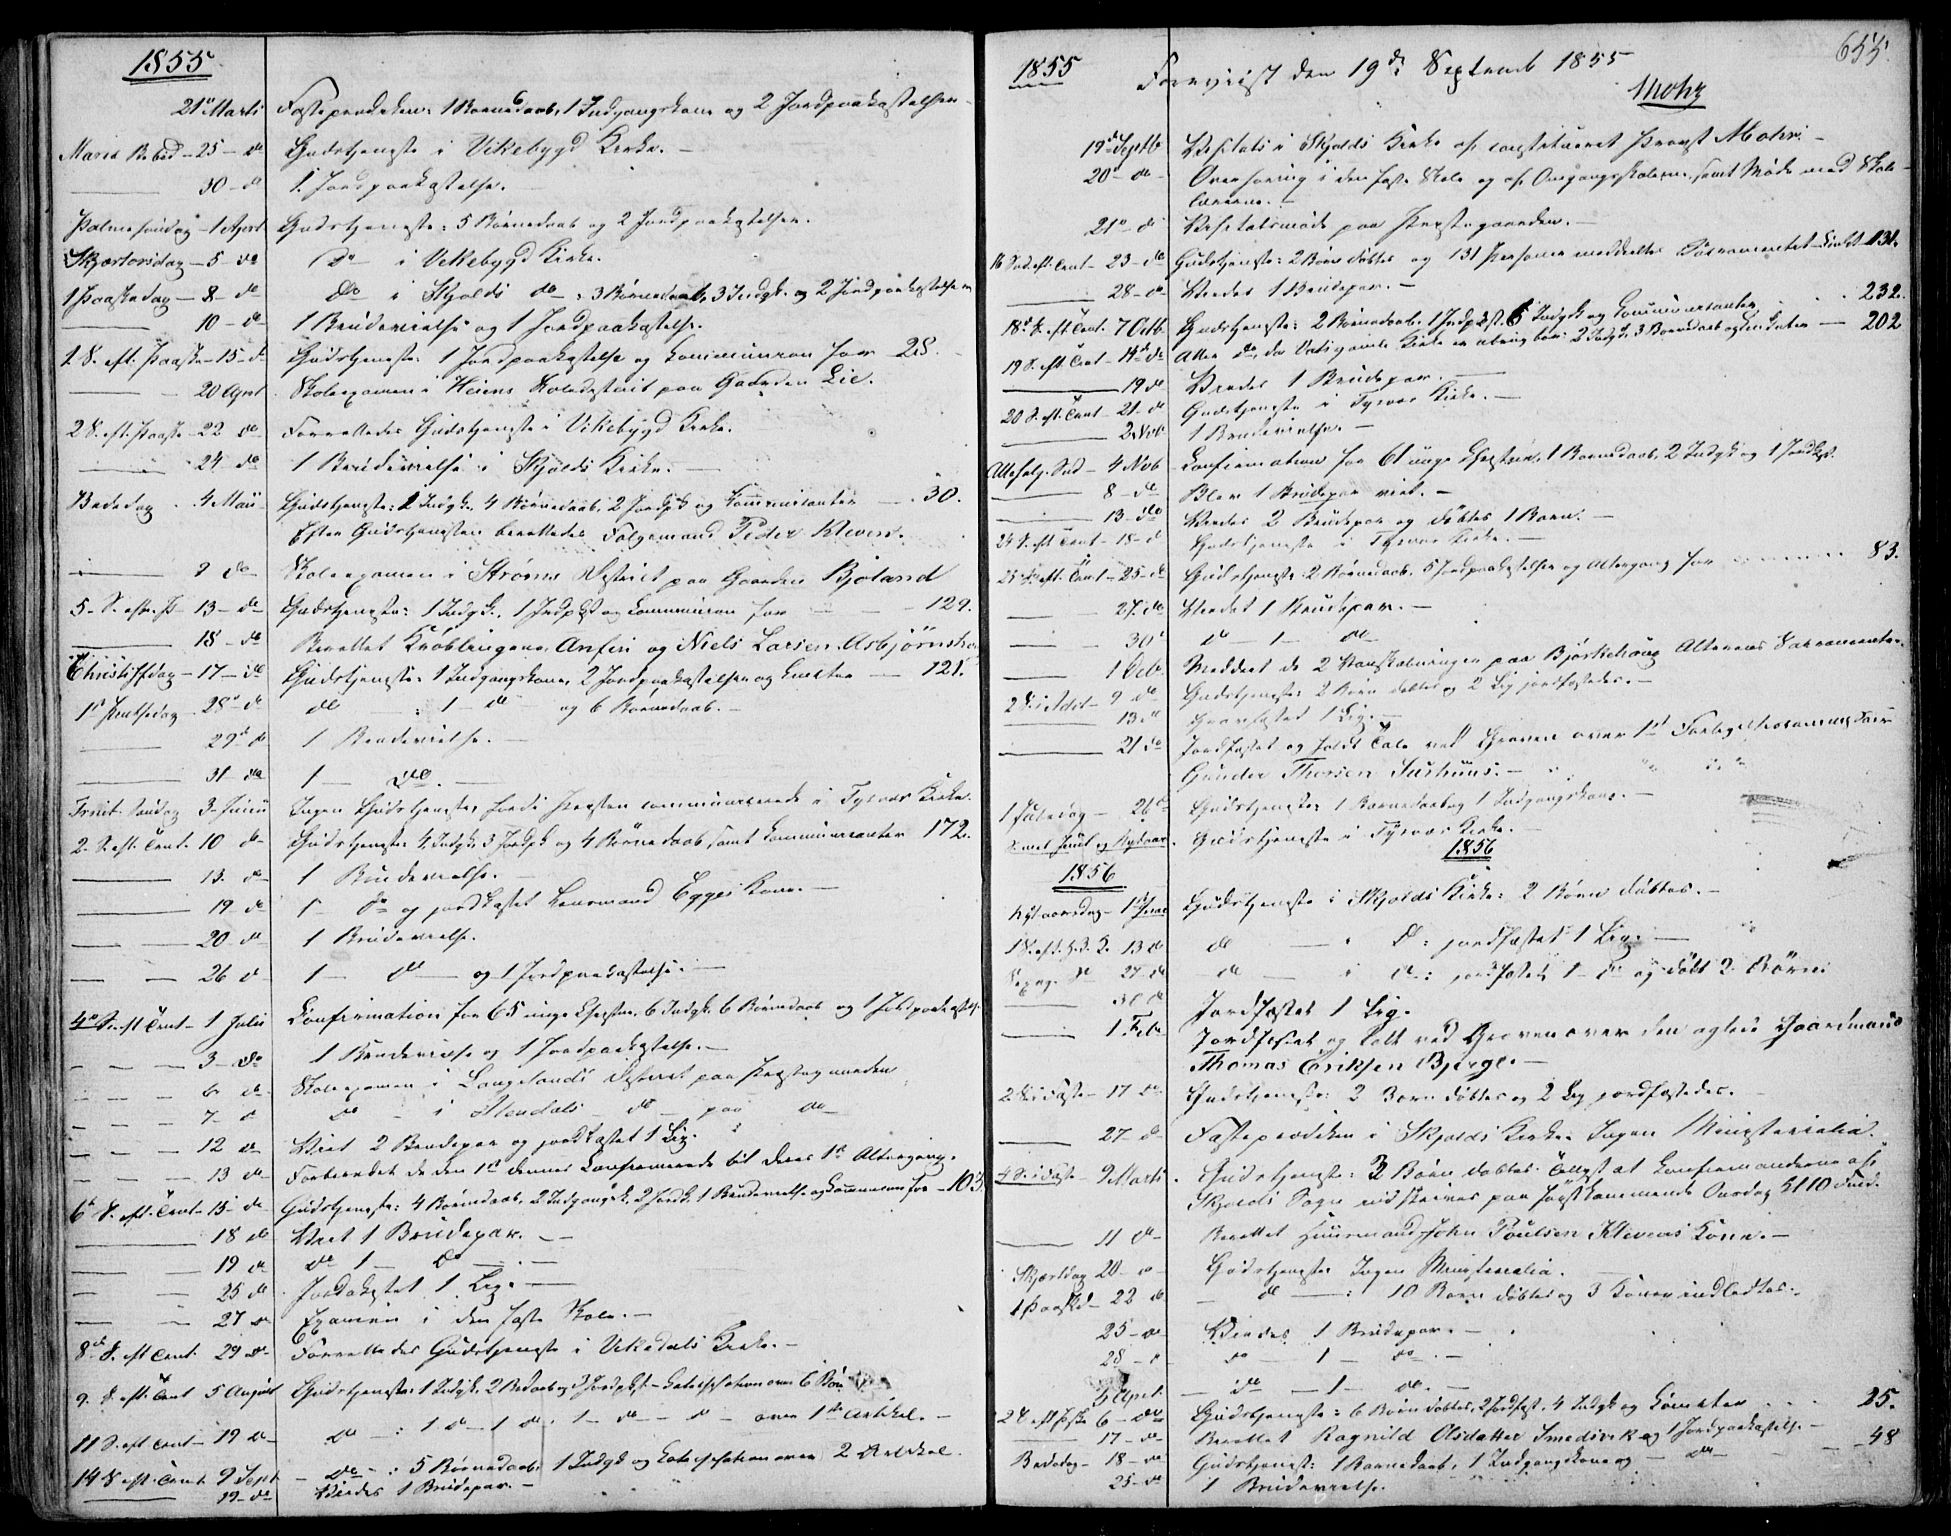 1855
21de Marts Fasteprædiken: 1 Barnedaab, 1 Indgangskone og 2 Jordpaakastelser
Mariæ Bebud - 25 - do Gudstjeneste i Vikebygd Kirke. -
30 - do 1. Jordpaakastelse.
Palmesöndag - 1 April Gudstjeneste: 5 Börnedaab og 2 Jordpaakastelser.
Skjærtorsdag - 5 - do Do i Vikebygd Kirke.
1 Paaskedag - 8 - do do i Skjolds do: 3 Börnedaab, 3 Indgk. og 2 Jordpaakastelser
10 - do 1 Brudevielse og 1 Jordpaakastelse.
1 S. eft. Paaske - 15 - do Gudstjeneste: 1 Jordpaakastelse og Communion for 28.
20 April Skoleexamen i Heiens Skoledistrict paa Gaarden Lie.
2 S. eft. Paaske - 22 do Forrettedes Gudstjeneste i Vikebygd Kirke.
24 do 1 Brudevielse i Skjolds Kirke. -
Bededag - 4 Mai Gudstjeneste: 2 Indgk. 4 Börnedaab, 2 Jordpk og Communicanter - 30.
Efter Gudstjenesten berettedes Fölgemand Peder Kleven.
9 do Skoleexamen i Ströms District paa Gaarden Bjoland
5 - S. eft. P. - 13 - do Gudstjeneste: 1 Indgk., 1 Jordpkst og Communion for - 129.
18 - do Berettet Kröblingene Anfin og Niels Larsen Asbjörns
Christi Hfdag - 17 - do Gudstjeneste: 1 Indgangskone, 2 Jordpaakastelser og Gjester - 121.
1ste Pintsedag - 28de do do : 1 do og 6 Börnedaab. -
29de do 1 Brudevielse. -
31 - do 1 - do. -
Trinit. Söndag 3 - Juni Ingen Gudstjeneste, fordi Præsten communicerede i Tysvær Kirke.
2. S. eft. Trint. 10 do Gudstjeneste: 4 Indgk. 3 Jordpk og 4 Börnedaab, samt Communicanter 172.
13. do 1 Brudevielse. -
19 - do 1 - do og jordkastet Lensmand Egges Kone. -
20 - do 1 Brudevielse.
26 do 1 - do - og 1 Jordpaakastelse. -
4de S. eft Trint - 1 Juli Confirmation for 65 unge Christne, 6 Indgk. 6 Börnedaab og 1 Jordpaakastelse
3 - do 1 Brudevielse og 1 Jordpaakastelse. -
6 - do Skoleexamen i Langelands District paa Præstegaarden
7 - do do - i Stendals - do - paa do
12 do Viet 2 Brudepar og jordkastet 1 Lig.
13 do Forberedt de den 1ste dennes Confirmerede til deres 1ste Altergang.
6te S. eft. Trint - 15 - do Gudstjeneste: 4 Börnedaab, 2 Indgangsk. 2 Jordk. 1 Brudevielse og Communion for - 103
18 do Viet 1 Brudepar. - -
19 do do 1 - do - -
25 do Jordkastet 1 Lig. -
27 do Examen i den faste Skole. -
8de S. eft Trint. 29 do Forrettedes Gudstjeneste i Vikedals Kirke. -
9. S. eft. Trint 5 August Gudstjeneste: 1 Indgk, 2 Bedaab og 3 Jordpkst - Katechisation over 6 Bön
11 S. eft Trint - 19 do do - : 1 do - 1 do 1 - do - do - over 1ste Artikel. -
14 S. eft. Trint 9 Sept - do - : 5 Börnedaab, 1 Indgk og Katechisation over 2 Artikel.
19 - do Viedes 1 Brudepar. -
655.
1855 Forevist den 19de Septemb 1855
Mohr
19de Septb Visitats i Skjolds Kirke af constitueret Provst Mohr. -
20de do Overhöring i den faste Skole og af Omgangsskolerne, samt Möde med Skole-
lærerne. -
21de do Visitatsmöde paa Præstegaarden. -
16 Sönd. eft. Trint - 23 - do Gudstjeneste: 2 Börn döbtes og 131 Personer meddeeltes Sacramentet 131.
28 - do Viedes 1 Brudepar. -
18de S. eft Trint. 7 Octb. Gudstjeneste: 2 Börnedaab, 1 Jordpkst. 5 Indgk og Communicanter 232.
19 S. eft Trint - 14de do Atter do, da Vats gamle Kirke er ubrugbar: 2 Indgk, 3 Barnedaab og Gjester - 202
19 do Viedes 1 Brudepar. -
20 S. eft. Trint - 21 - do Gudstjeneste i Tysvær Kirke. -
2 Nov 1 Brudevielse. -
Allehelg. Sönd - 4 Nov Confirmation for 61 unge Christne, 1 Barnedaab, 2 Indgk og 1 Jordkst.
8 - do Blev 1 Brudepar viet. -
13 - do Viedes 2 Brudepar og döbtes 1 Barn. -
24 S. eft Trint - 18 - do Gudstjeneste i Tysvær Kirke. -
25 S. eft. Trint - 25 - do Gudstjeneste: 2 Börnedaab, 5 Jordpaakastelser og Altergang for 83.
27. do Viedes 1 Brudepar. -
30 do - 1 - do
1 Decb. Meddeelt de 2 paa Björkehaug Alterens Sacramente.
2 S. i Advt - 9 do Gudstjeneste: 2 Börn döbtes og 2 Lig jordfæstedes. -
13 do Jordfæstet 1 Lig. -
21 do Jordfæstet og holdt Tale ved Graven over 1ste Forligelsescommissair
Gunder Thorsen Sushuus. -
1 Juledag - 26de Gudstjeneste: 1 Barnedaab og 1 Indgangskone. -
S. mel. Juul og Nytaar. Gudstjeneste i Tysvær Kirke. -
1856
1856
Nytaarsdag - 1ste Janr Gudstjeneste i Skjolds Kirke: 2 Börn döbtes. -
1 S. eft. H. 3. K. 13 do do - i do : jordfæstet 1 Lig. -
Septuag. S. 27 do do - i do : jordfæstet 1 - do og döbt 2 Börn.
31 do Jordfæstet 1 Lig.
1 Feb. Jordfæstet og talt ved Graven over den agtede Gaardmand
Thomas Eriksen Bjerge. -
2 S. i Faste - 17 do Gudstjeneste: 2 Börn döbtes og 2 Lig jordfæstedes. -
27 - do Fasteprædiken i Skjolds Kirke. Ingen Ministerialia.
4 S. i Faste - 9 Marts Gudstjeneste: 3 Börn döbtes. Tillyst at Confirmanderne af
Skjolds Sogn indskrives paa förstkommende Onsdag Kl 10 Form.
11 do Berettet Huusmand John Poulsen Klevens Kone. -
Skjærtsdag 20 - do Gudstjeneste. Ingen Ministerialia. -
1 Paaskd - 23 do - do - : 10 Börn döbtes og 3 Koner indledtes. -
25 - do Viedes 1 Brudepar. -
28 - do do 1 - do. -
5 April - do - 1 - do. -
2 S eft Paaske 6 - do Gudstjeneste: 6 Börn döbtes, 2 Jordfæst. 4 Indgk og Gjester 25.
17 - do Berettet Ragnild Olsdatter Smedsvik og 1 Jordpaakastelse -
Bededag - 18 - do Gudstjenest: 1 Barnedaab, 1 Indgangskone og - do - 48
25 - do 1 Brudevielse.